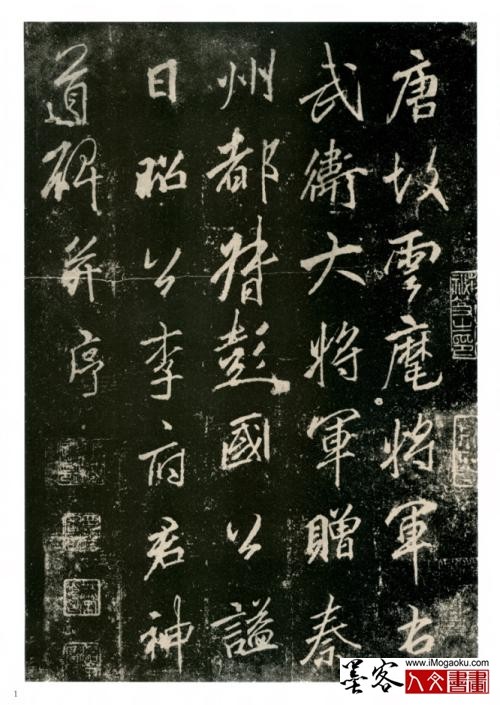 唐故雲麾將軍右
武衛大將軍贈秦
州都督彭國公謚
曰昭公李府君神
道碑并序
1
墨客
www.iMogaoku.com
人文書畫